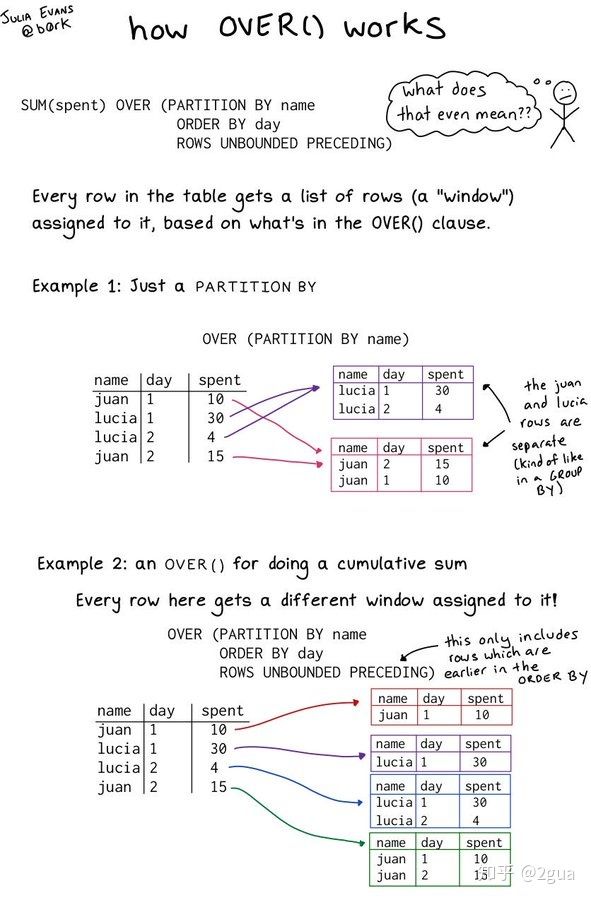 JULIA EVANS
@b0rk
how OVER() works
SUM(spent) OVER (PARTITION BY name
ORDER BY day
ROWS UNBOUNDED PRECEDING)
what does
that even mean??
Every row in the table gets a list of rows (a "window")
assigned to it, based on what's in the OVER() clause.
Example 1: Just a PARTITION BY
OVER (PARTITION BY name)
name day spent
juan 1 10
lucia 1 30
lucia 2 4
juan 2 15
name day spent
lucia 1 30
lucia 2 4
name day spent
juan 2 15
juan 1 10
the juan
and lucia
rows are
separate
(kind of like
in a GROUP
BY)
Example 2: an OVER() for doing a cumulative sum
Every row here gets a different window assigned to it!
OVER (PARTITION BY name
ORDER BY day
ROWS UNBOUNDED PRECEDING)
this only includes
rows which are
earlier in the
ORDER BY
name day spent
juan 1 10
lucia 1 30
lucia 2 4
juan 2 15
name day spent
juan 1 10
name day spent
lucia 1 30
name day spent
lucia 1 30
lucia 2 4
name day spent
juan 1 10
juan 2 15
知乎 @2gua